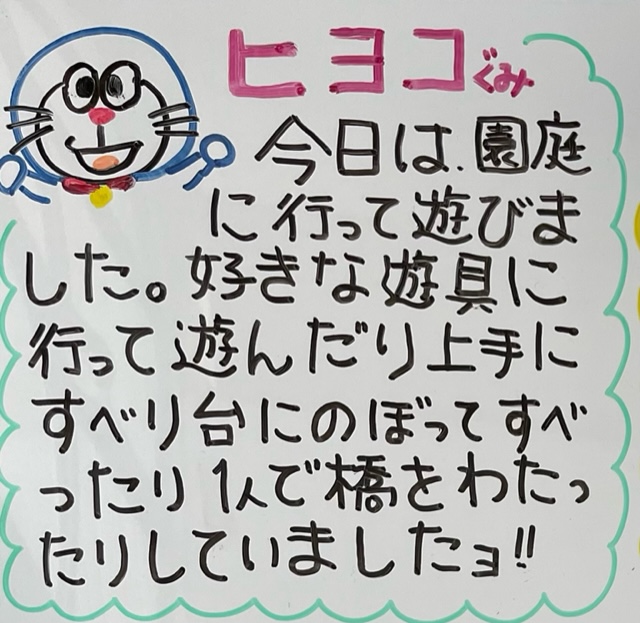 ヒヨコぐみ
今日は、園庭
に行って遊びま
した。好きな遊具に
行って遊んだり上手に
すべり台にのぼってすべ
ったり1人で橋をわたっ
たりしていましたョ!!